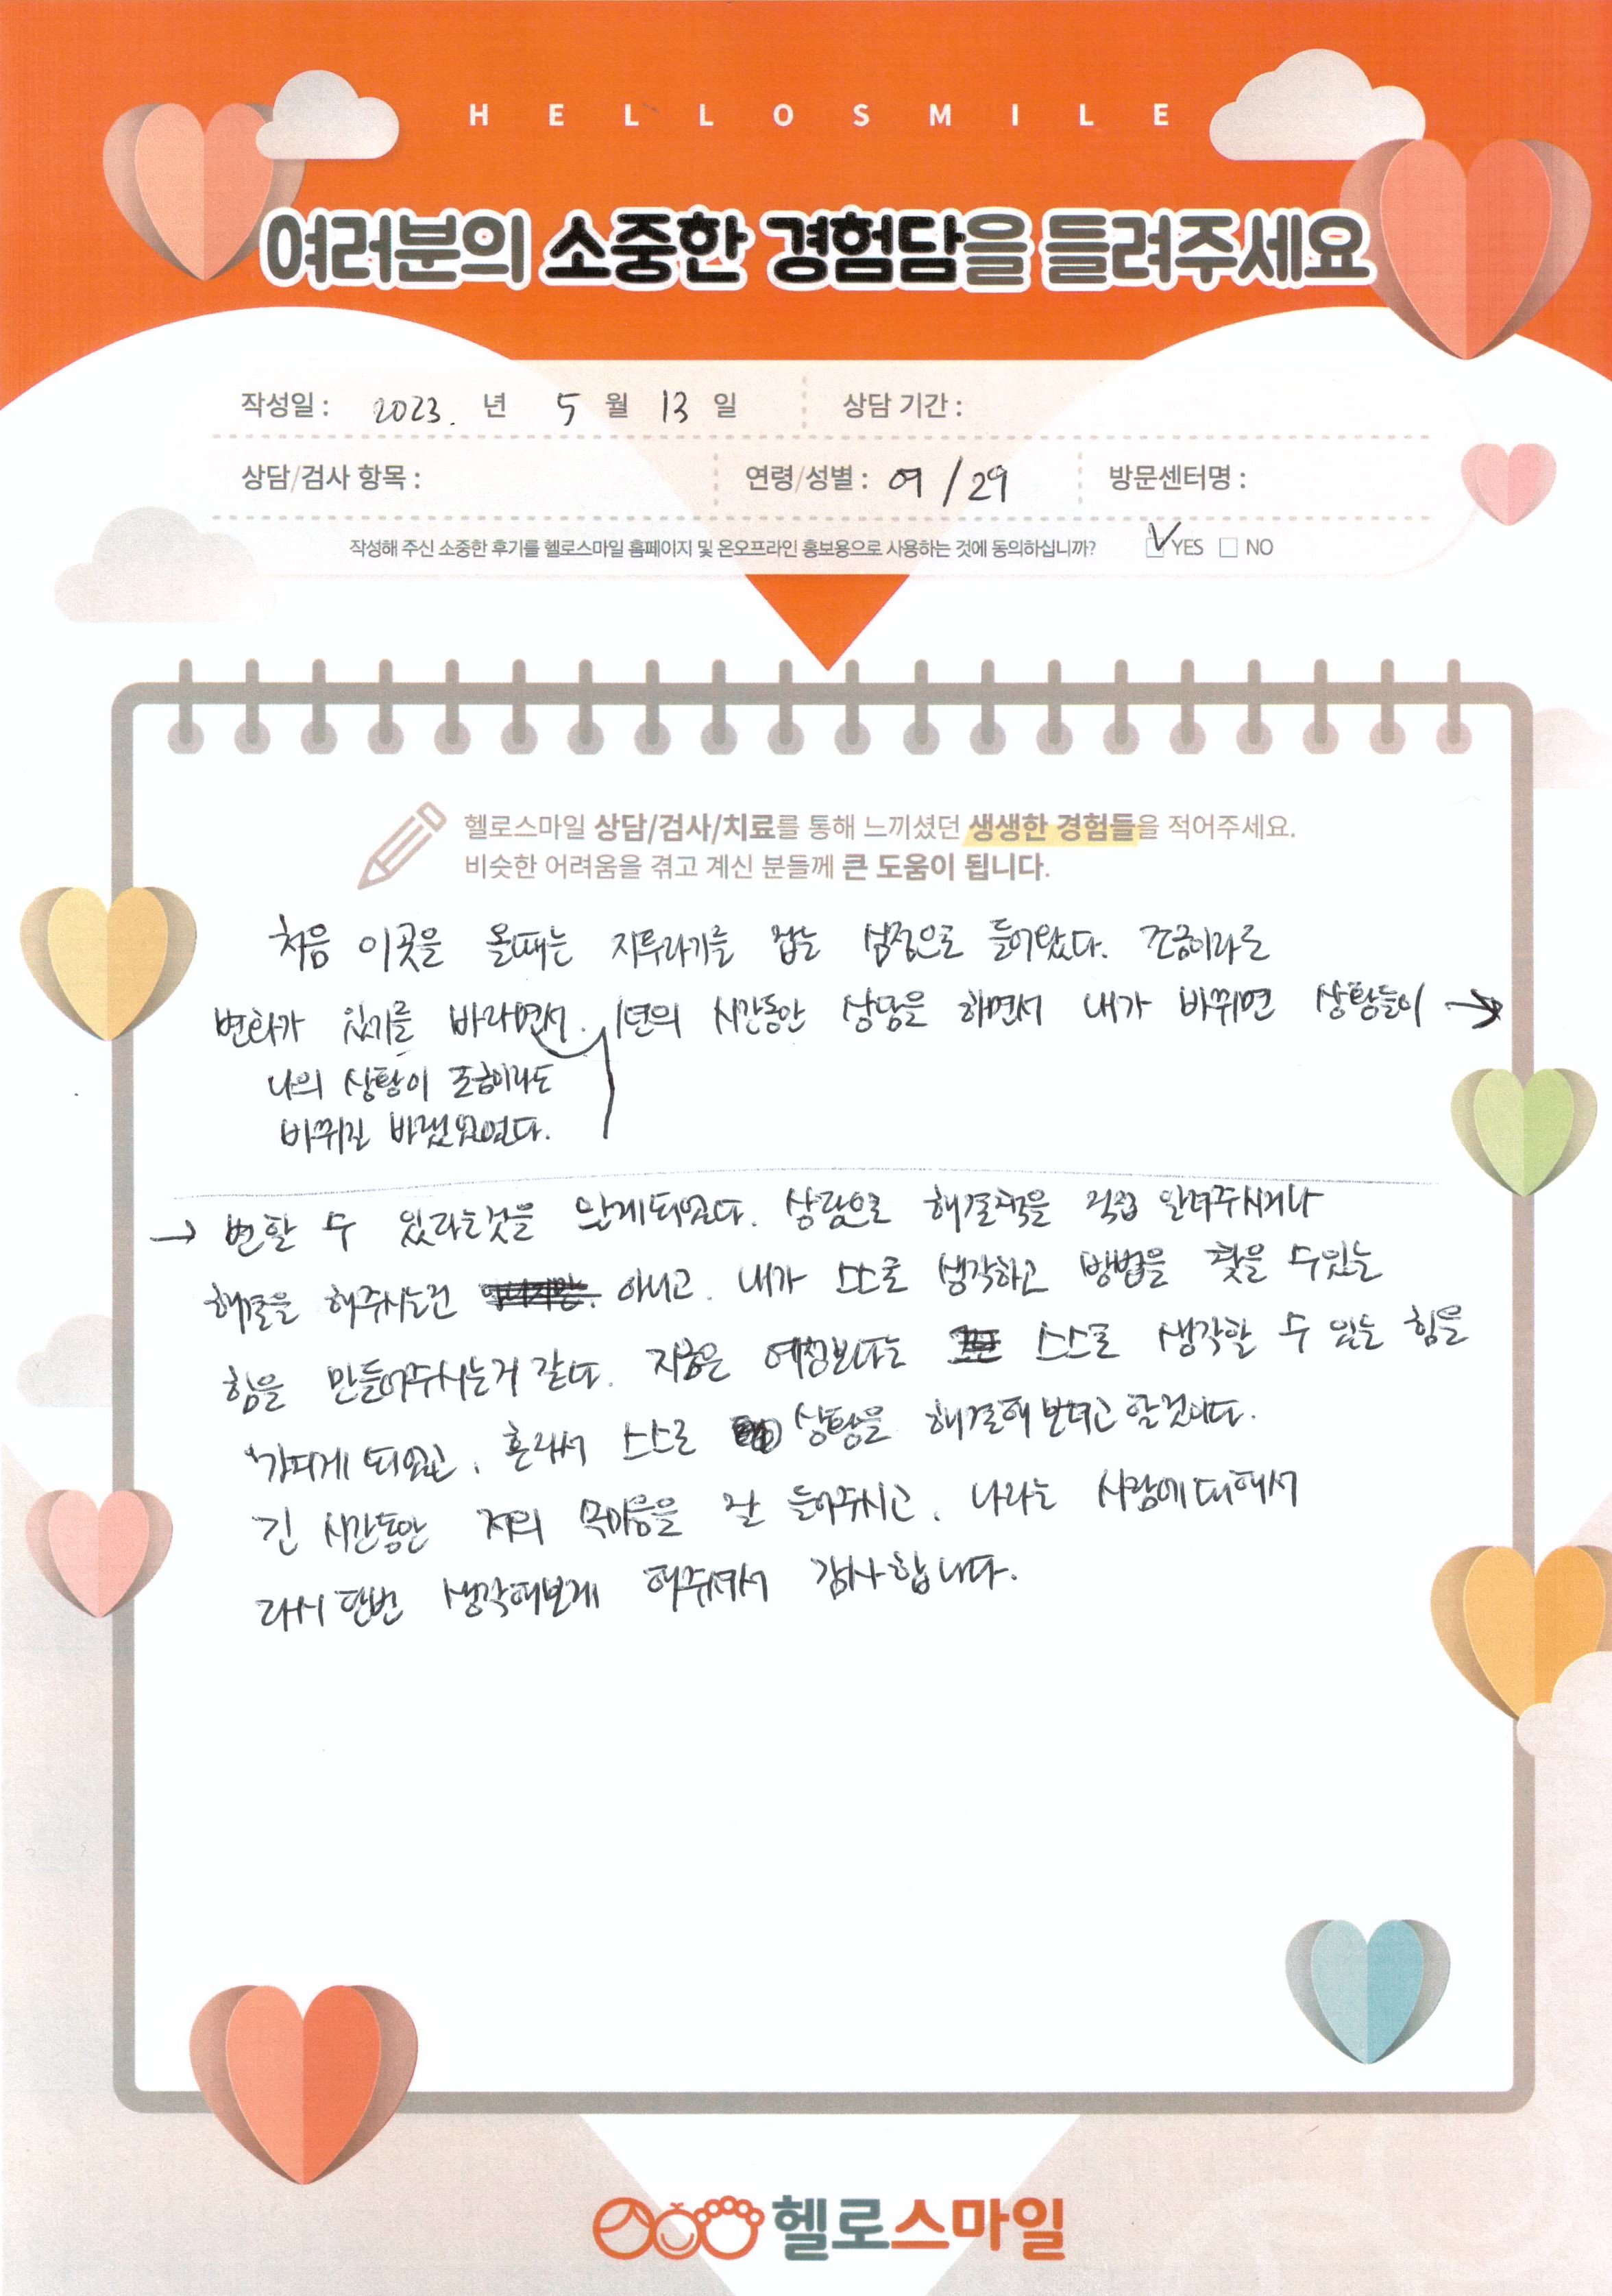 HELLOSMILE
여러분의 소중한 경험담을 들려주세요
작성일 : 2023. 년 5 월 13 일 상담 기간 :
상담/검사 항목 : 연령/성별 : 여 / 29 방문센터명 :
작성해 주신 소중한 후기를 헬로스마일 홈페이지 및 온오프라인 홍보용으로 사용하는 것에 동의하십니까? YES NO
헬로스마일 상담/검사/치료를 통해 느끼셨던 생생한 경험들을 적어주세요.
비슷한 어려움을 겪고 계신 분들께 큰 도움이 됩니다.
처음 이곳을 올때는 지푸라기를 잡는 심정으로 들어왔다. 조금이라도
변화가 있기를 바라면서. 1년의 시간동안 상담을 하면서 내가 바뀌면 상황들이 →
나의 상황이 조금이라도
바뀌길
→ 변할 수 있다라는것을 알게되었다. 상담으로 해결책을 직접 알려주시거나
해결을 해주시는건 아니고. 내가 스스로 생각하고 방법을 찾을 수있는
힘을 만들어주시는거 같다. 지금은 예전보다는 스스로 생각할 수 있는 힘을
가지게 되었고, 혼자서 스스로 상황을 해결해 보려고 할것이다.
긴 시간동안 저의 속마음을 잘 들어주시고, 나라는 사람에대해서
다시 한번 생각해보게 해주셔서 감사합니다.
헬로스마일